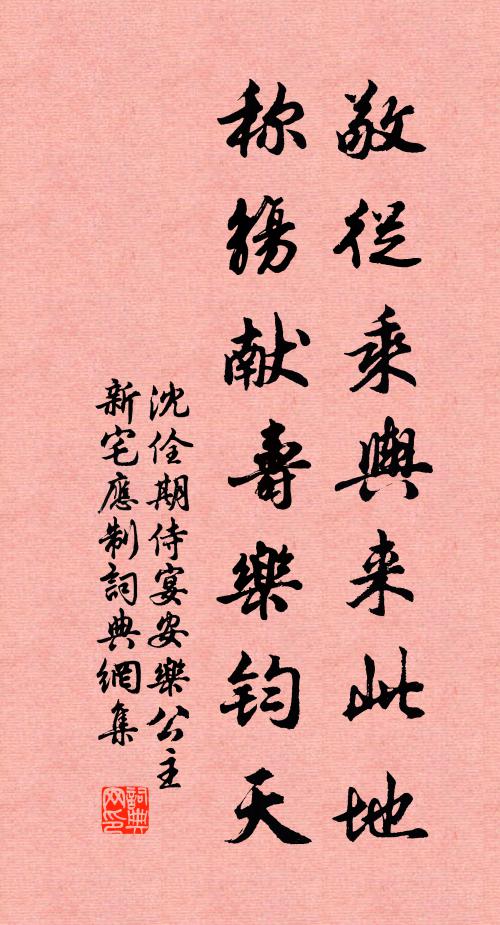 敬従乘輿来此地
称觴献壽樂钧天
沈佺期侍宴安樂公主
新宅應制詞典網集
詞典网印